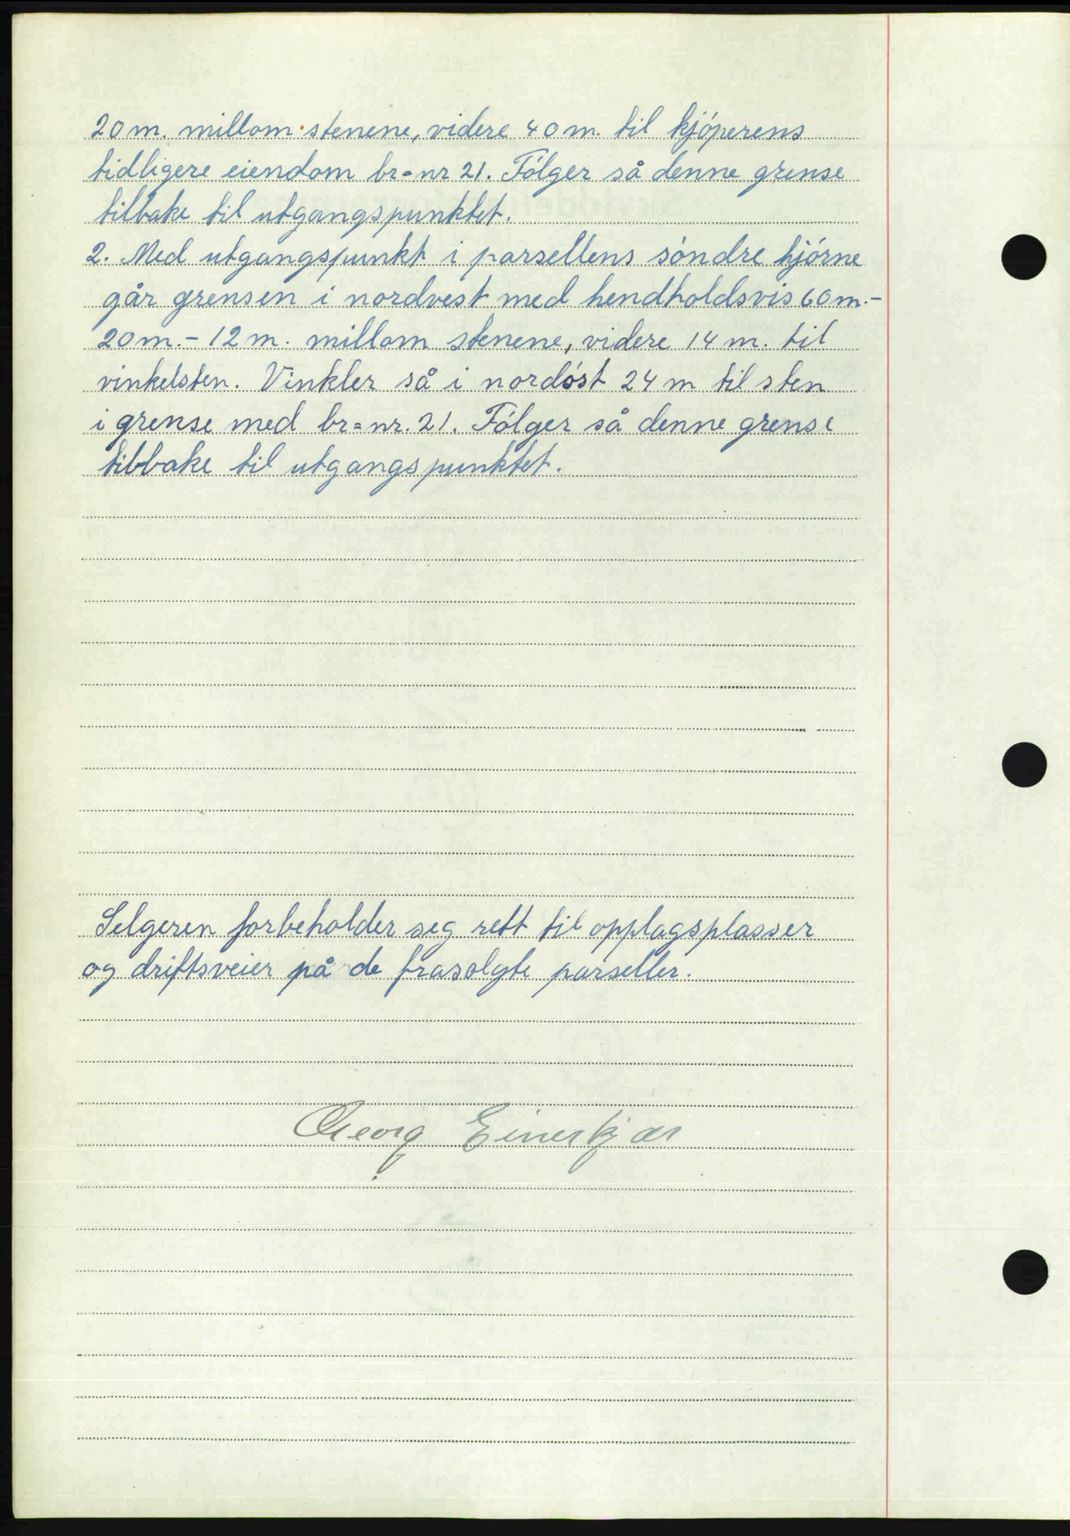 20 m. millom stenene, videre 40 m. til kjøperens
tidligere eiendom br=nr 21. Følger så denne grense
tilbake til utgangspunktet.
2. Med utgangspunkt i parsellens søndre hjørne
går grensen i nordvest med hendholdsvis 60 m.-
20 m.- 12 m. millom stenene, videre 14 m. til
vinkelsten. Vinkler så i nordøst 24 m til sten
i grense med br=nr. 21. Følger så denne grense
tilbake til utgangspunktet.
Selgeren forbeholder seg rett til opplagsplasser
og driftsveier på de frasolgte parseller.
Georg Einerkjær